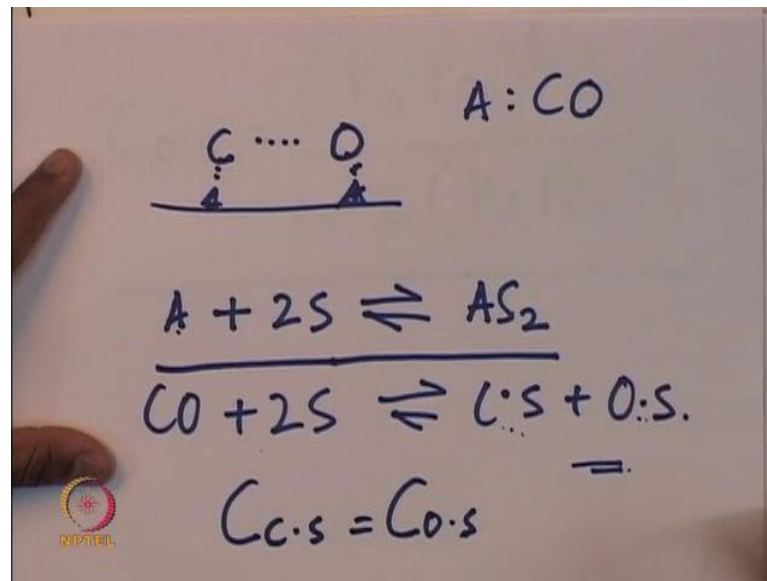 A : CO
C .... O
A + 2S ⇌ AS₂
CO + 2S ⇌ C·S + O·S.
C_{C·S} = C_{O·S}
NPTEL